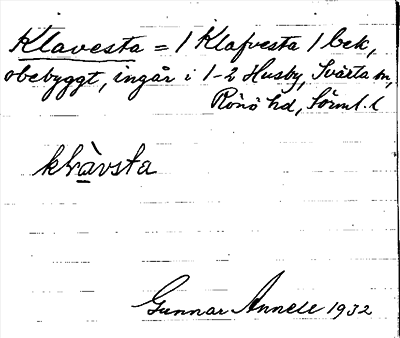 Klavesta = 1 Klafvesta 1 bek,
obebyggt, ingår i 1-2 Husby, Svärta sn,
Rönö hd, Sörml. l.
klàvsta
Gunnar Annell 1932